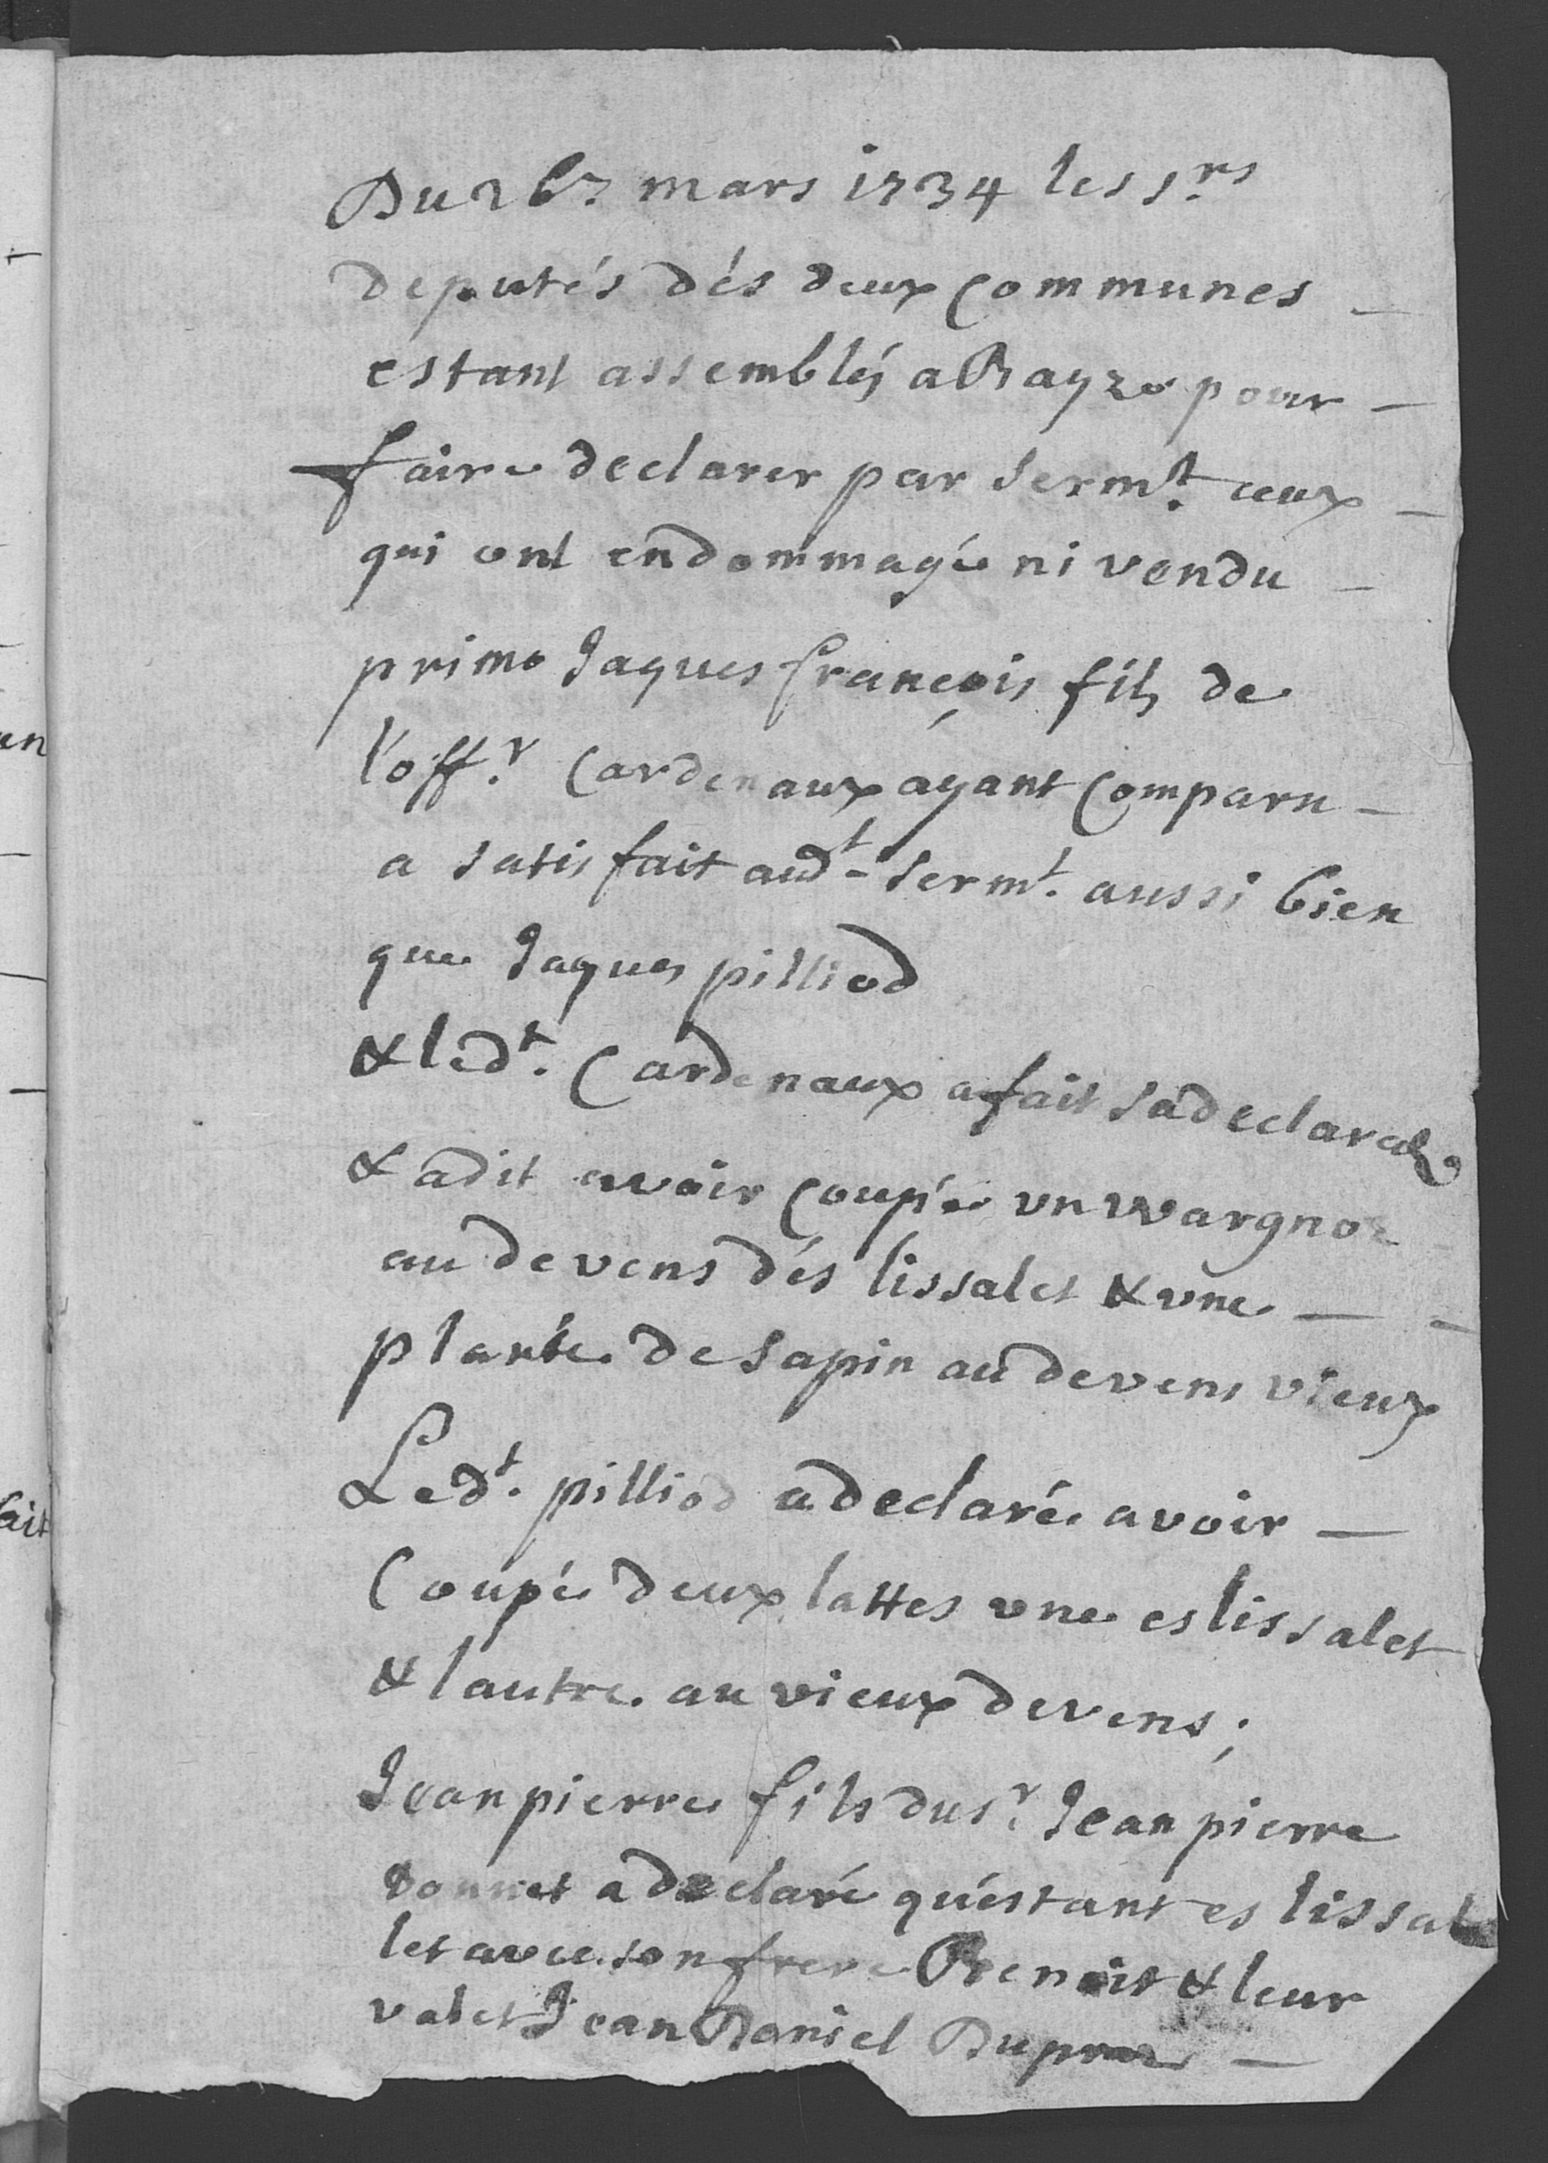 Du 26.e mars 1734 les s.rs
deputés dés deux Communes
estant assemblés a Rayre pour
faire declarer par serm.t ceux
qui ont endommagée ni vendu
primo Jaques françois fils de
l'off.r Cardenaux ayant Comparu
a satisfait aud.t serm.t aussi bien
que Jaques pilliod
& led.t Cardenaux a fait sa declara.on
& a dit avoir Coupée un wargnoz
au devens dés lissalet & une
plante de sapin au devens vieux
Led.t pilliod a declarée avoir
Coupée deux lattes une es lissalet
& lautre au vieux devens;
Jean pierre fils du s.r Jean pierre
a declaré qu'estant es lissal
let avec son frere Benoit & leur
valet Jean Daniel Dupraz
an
fait